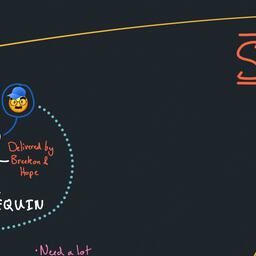 S
Delivered by
Breekon &
Hope
EQUIN
• Need a lot